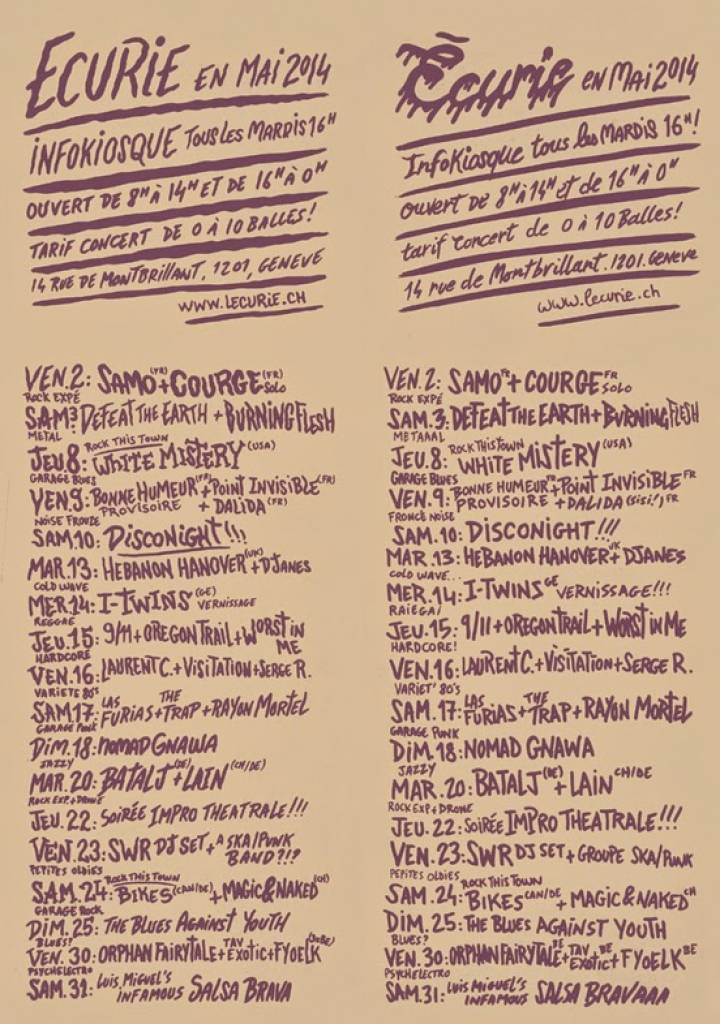 ECURIE EN MAI 2014
INFOKIOSQUE TOUS LES MARDIS 16H
OUVERT DE 8H À 14H ET DE 16H À 0H
TARIF CONCERT DE 0 À 10 BALLES!
14 RUE DE MONTBRILLANT. 1201, GENEVE
WWW.LECURIE.CH
VEN.2: SAMO(FR)+COURGE(FR) SOLO
ROCK EXPÉ
SAM3: DEFEAT THE EARTH + BURNING FLESH
METAL
ROCK THIS TOWN
JEU 8: WHITE MISTERY (USA)
GARAGE BLUES
VEN.9: BONNE HUMEUR(FR)+POINT INVISIBLE(FR)
PROVISOIRE + DALIDA(FR)
NOISE FROUDE
SAM.10: DISCONIGHT!!!
MAR.13: HEBANON HANOVER(UK)+DJANES
COLD WAVE
MER.14: I-TWINS(GE) VERNISSAGE
REGGAE
JEU.15: 9/11+OREGON TRAIL+WORST IN ME
HARDCORE
VEN.16: LAURENT C.+VISITATION+SERGE R.
VARIETE 80'S
SAM.17: LAS FURIAS+THE TRAP+RAYON MORTEL
GARAGE PUNK
DIM.18: NOMAD GNAWA
JAZZY
MAR.20: BATALJ(DE)+LAIN(CH/DE)
ROCK EXP.+DRONE
JEU.22: SOIRÉE IMPRO THEATRALE!!!
VEN.23: SWR DJ SET+A SKA/PUNK BAND?!?
PEPITES OLDIES
ROCK THIS TOWN
SAM.24: BIKES(CAN/DE)+MAGIC&NAKED(CH)
GARAGE ROCK
DIM.25: THE BLUES AGAINST YOUTH
BLUES?
VEN.30: ORPHAN FAIRYTALE+TAV EXOTIC+FYOELK(3xBE)
PSYCHELECTRO
SAM.31: LUIS MIGUEL'S INFAMOUS SALSA BRAVA
Écurie EN MAI 2014
InfoKiosque tous les MARDIS 16H!
Ouvert DE 8H À 14H et de 16H À 0H
tarif Concert de 0 À 10 Balles!
14 rue de Montbrillant. 1201. Geneve
www.lecurie.ch
VEN.2: SAMO FR+ COURGE FR SOLO
ROCK EXPÉ
SAM.3: DEFEAT THE EARTH+BURNING FLESH
METAAAL
ROCK THIS TOWN
JEU.8: WHITE MISTERY (USA)
GARAGE BLUES
VEN.9: BONNE HUMEUR FR+POINT INVISIBLE FR
PROVISOIRE + DALIDA (SISI!) FR
FRONCE NOISE
SAM.10: DISCONIGHT!!!
MAR.13: HEBANON HANOVER UK+DJANES
COLD WAVE...
MER.14: I-TWINS GE VERNISSAGE!!!
RAIEGAI
JEU.15: 9/11+OREGON TRAIL+WORST IN ME
HARDCORE!
VEN.16: LAURENT C.+VISITATION+SERGE R.
VARIET' 80'S
SAM.17: LAS FURIAS+THE TRAP+RAYON MORTEL
GARAGE PUNK
DIM.18: NOMAD GNAWA
JAZZY
MAR.20: BATALJ(DE)+LAIN CH/DE
ROCK EXP+DRONE
JEU.22: SOIRÉE IMPRO THEATRALE!!!
VEN.23: SWR DJ SET+GROUPE SKA/PUNK
PEPITES OLDIES
ROCK THIS TOWN
SAM.24: BIKES CAN/DE + MAGIC&NAKED CH
DIM.25: THE BLUES AGAINST YOUTH
BLUES?
VEN.30: ORPHAN FAIRYTALE BE+TAV EXOTIC BE+FYOELK BE
PSYCHELECTRO
SAM.31: LUIS MIGUEL'S INFAMOUS SALSA BRAVAAA